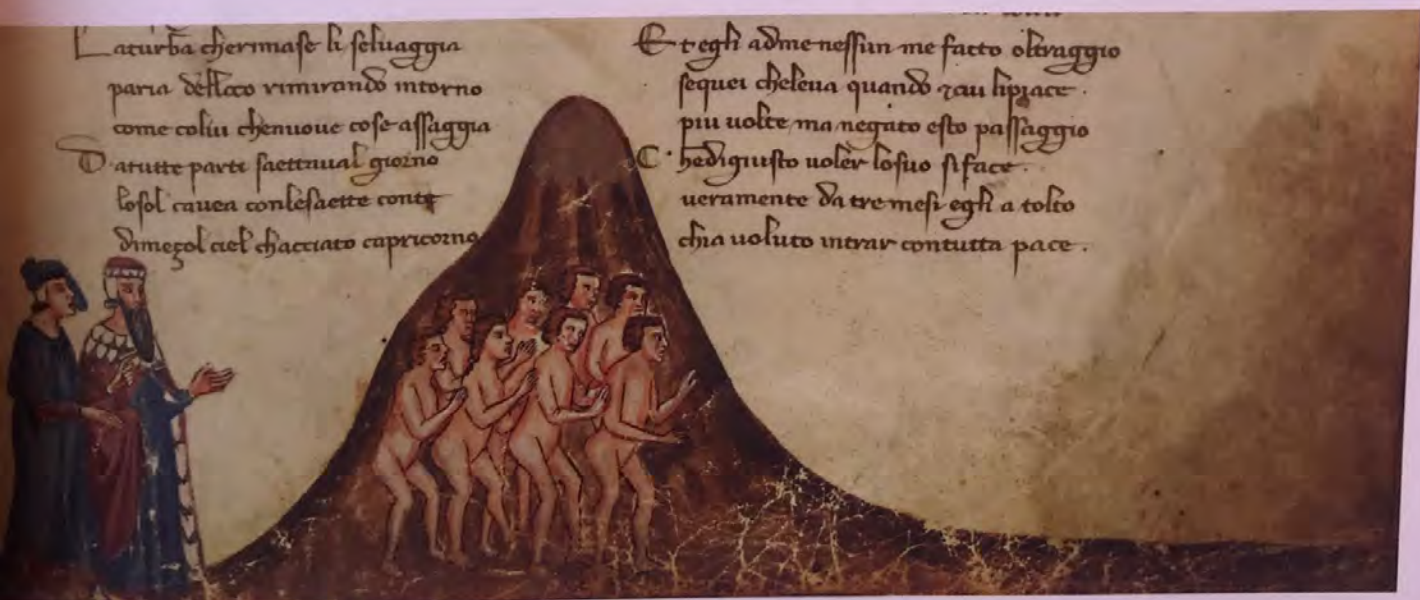 Laturba cherimase li seluaggia
paria delloco rimirando intorno
come colui chenuoue cose assaggia
Datutte parti saettaual giorno
losol cauea conlesaette conte
dimeçol ciel chacciato capricorno
Et egli adme nessun me facto oltraggio
sequei cheleua quando & cui lipiace .
piu uolte ma negato esto passaggio
C . hedigiusto uoler losuo siface .
ueramente da tre mesi egli a tolto
chia uoluto intrar contutta pace .